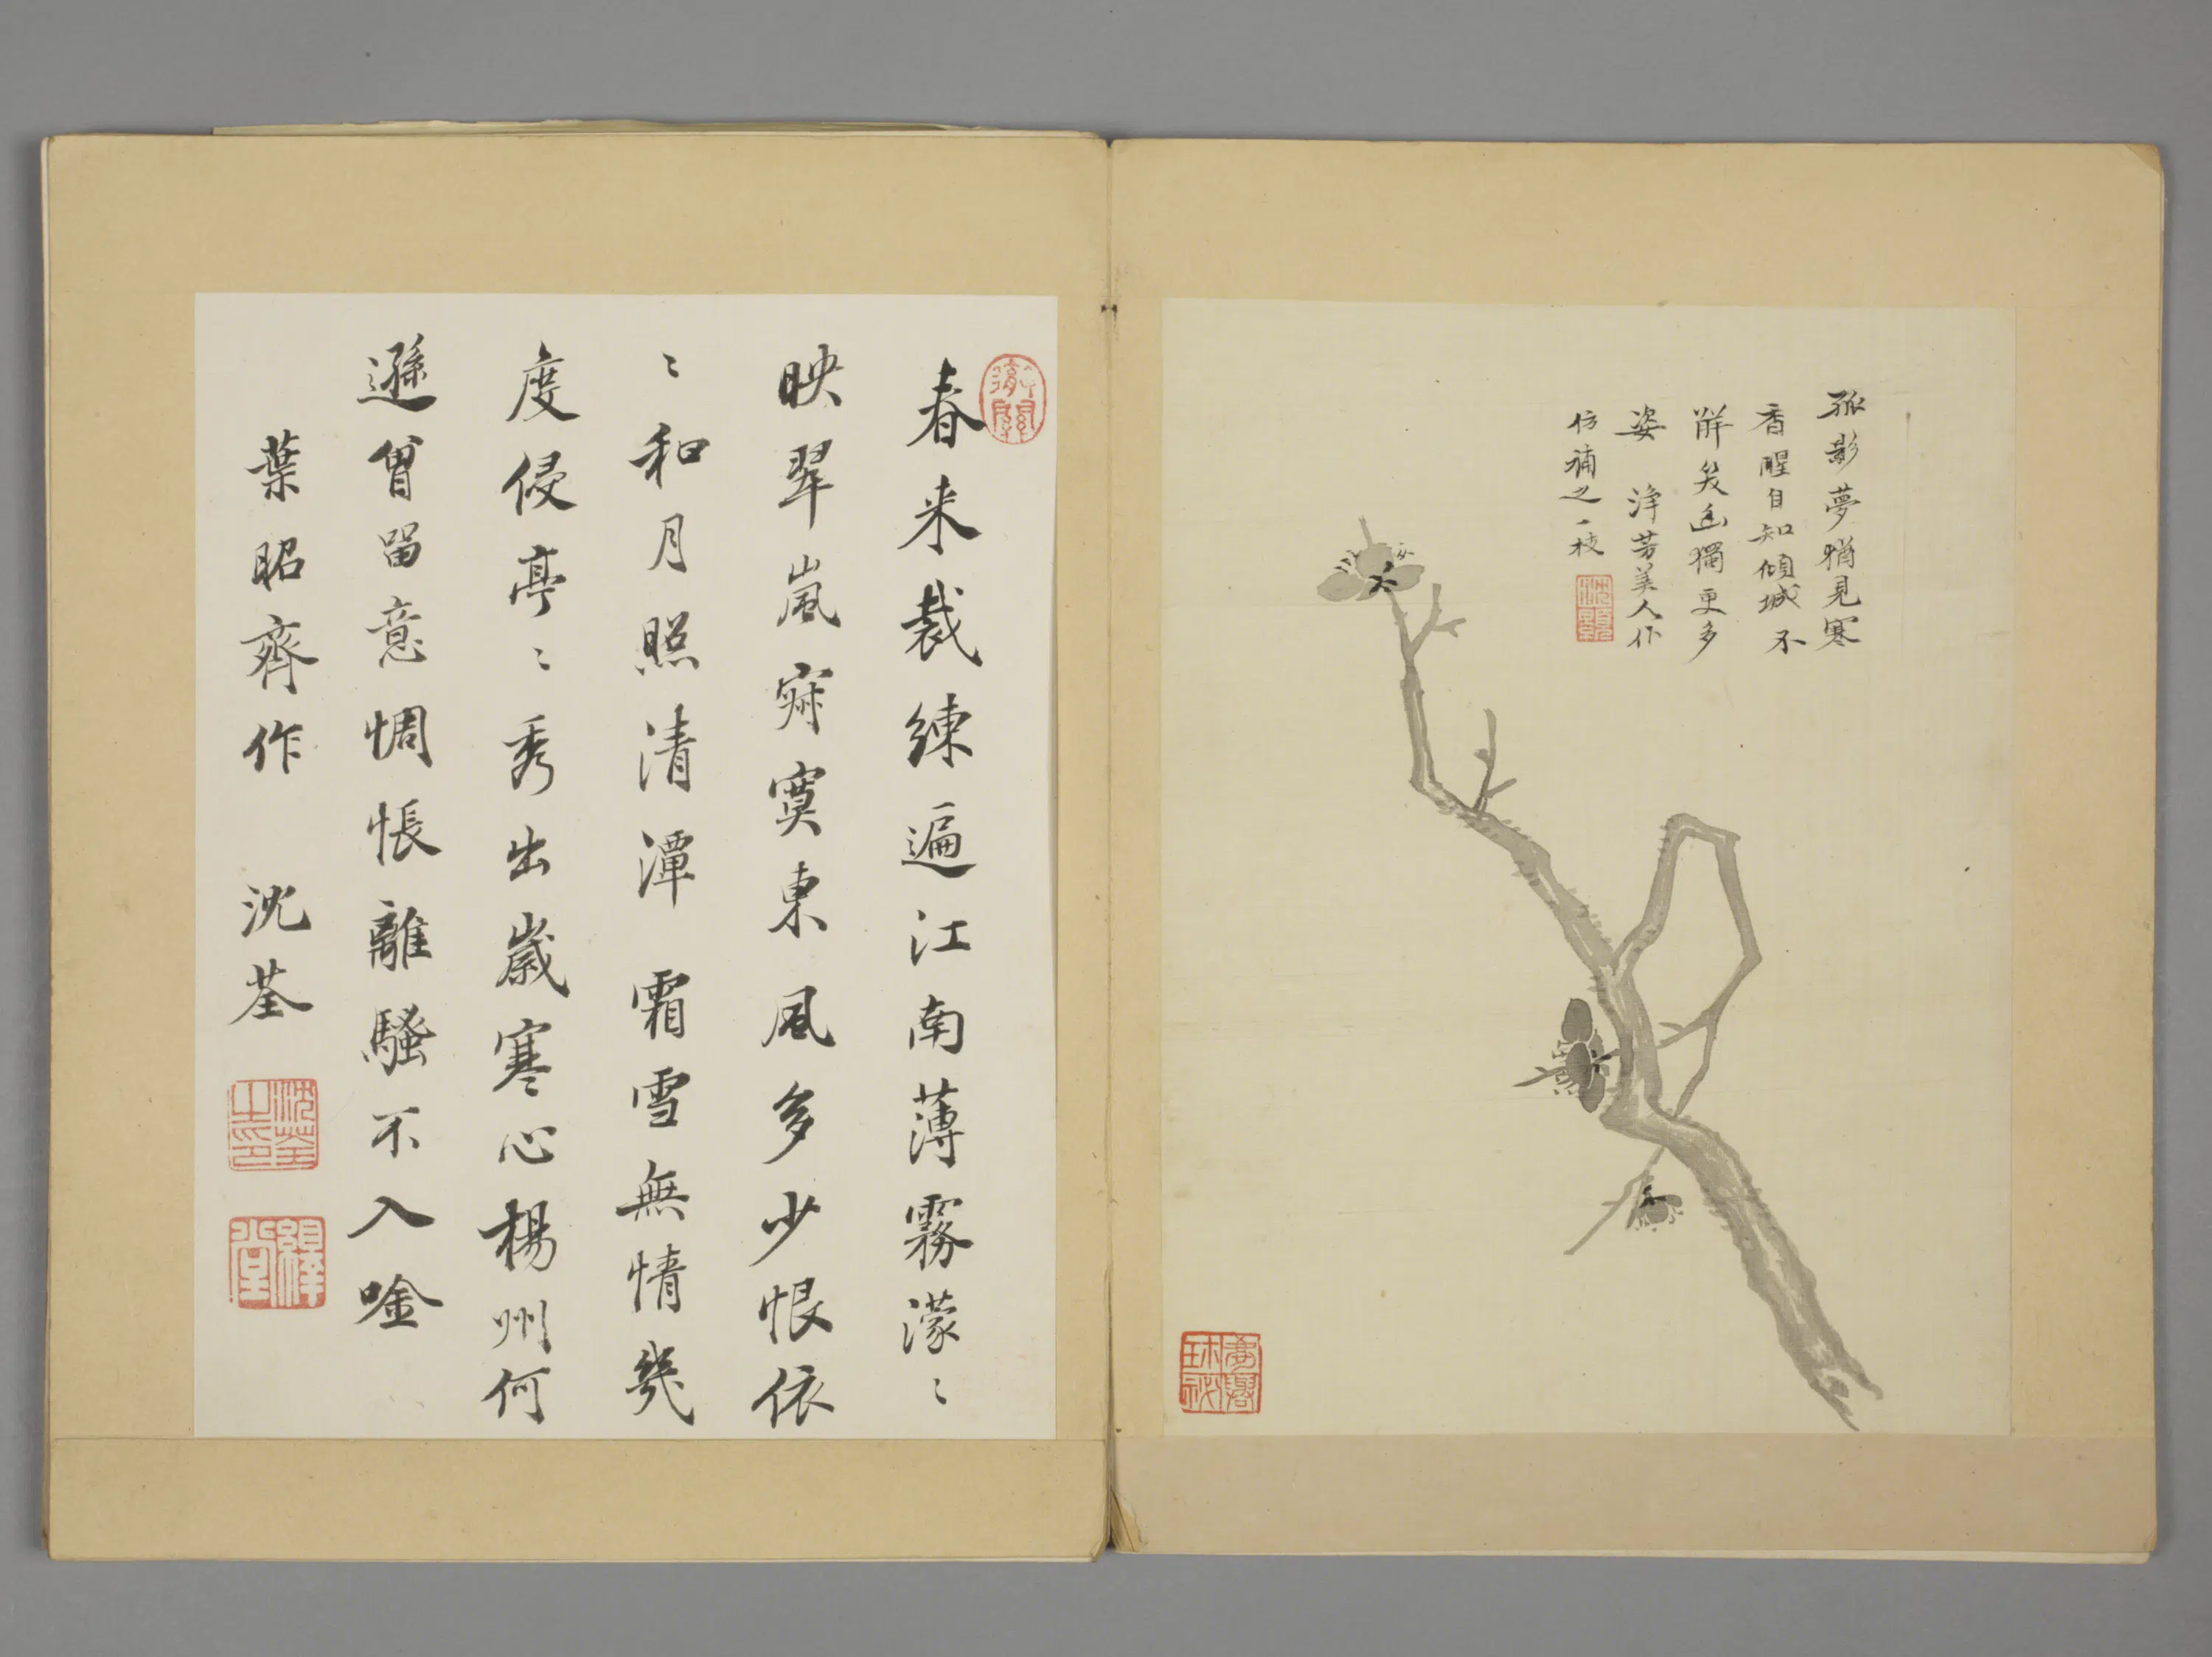 孤影夢猶見寒
香醒自知傾城不
觧笑幽獨更多
姿 淨芳美人作
仿補之一枝
沈顥
春来裁練遍江南薄霧濛〻
映翠嵐寂寞東風多少恨依
〻和月照清潭 霜雪無情幾
度侵亭〻秀出歲寒心楊州何
遜曾留意惆悵離騷不入唫
葉昭齊作 沈荃
沈荃之印
繹堂